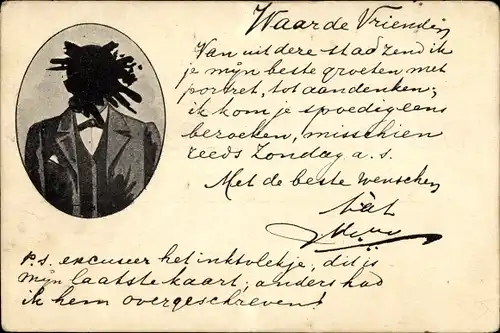 Waarde Vriendin
Van uit deze stad zend ik
je mijn beste groeten met
portret, tot aandenken;
ik kom je spoedig eens
bezoeken, misschien
reeds Zondag a. s.
Met de beste wenschen
P.S. excuseer het inktvlekje, dit is
mijn laatste kaart, anders had
ik hem overgeschreven!